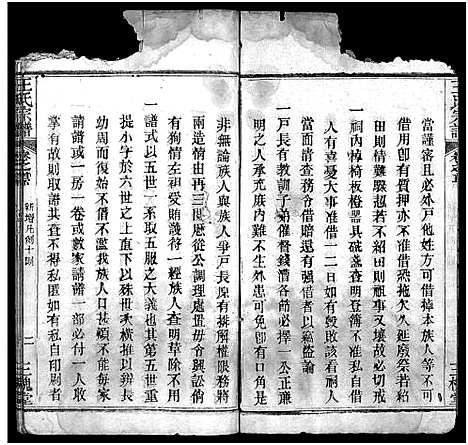 當謹審且必外戶他姓方可借掉本族人等不可
借用雖有質押亦不准借恐拖欠久延廢祭若祠
內之情
一祠中椅板橙器具碗盞查明登簿不准私借或
人有喜憂大事准借一二日如有毀敗該看祠人
當面清查務令借賠還有强借者以竊盜論
一戶長有教訓子弟催督錢漕各節必擇一公正廉
明之人承充庶內難不生外患可免倘有口角是
非無論族人與族人爭戶長俾有排解權限務將
兩造情由再三思歷從公調理處置毋許興訟倘
有狗情左袒受賄議待一經族人查明草除不用
一譜式以五世一系取五服之大義也其第五世重
提小字於六世之上直下以殊世承横推以辨長
幼周而復始不僭不濫我族人口甚繁不能每家
請譜或一房一卷或數家請譜一部必付一人收
掌有故則取譜共查不得私匿如有私自印刷者
王氏宗譜
新增凡例十則
二
三槐堂